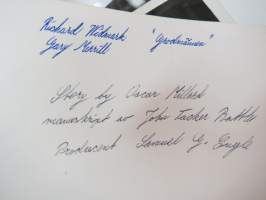 Richard Widmark "Grodmannen"
Gary Merrill
Story by Oscar Millard
manuskript av John Tucker Battle
Producent Samuel G. Engle